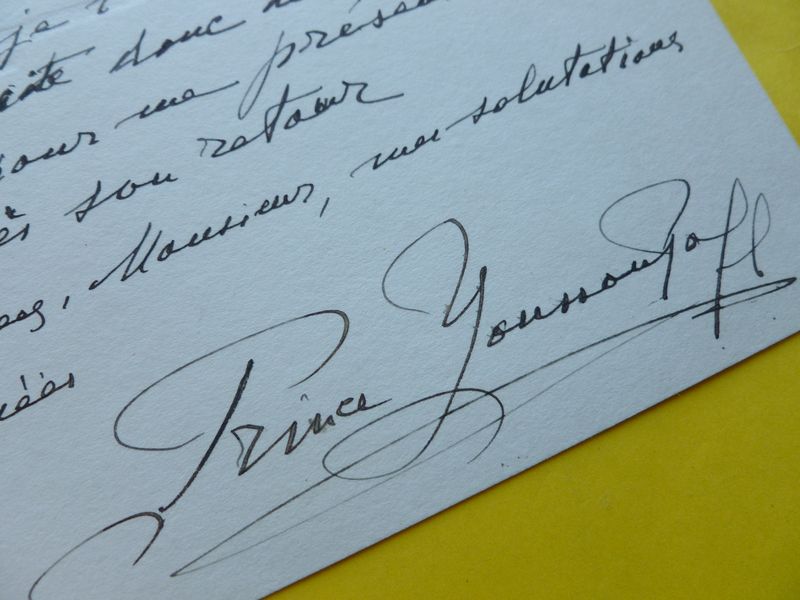 je
donc
pour me présen
son retour
Monsieur, mes salutations
Prince Youssoupoff